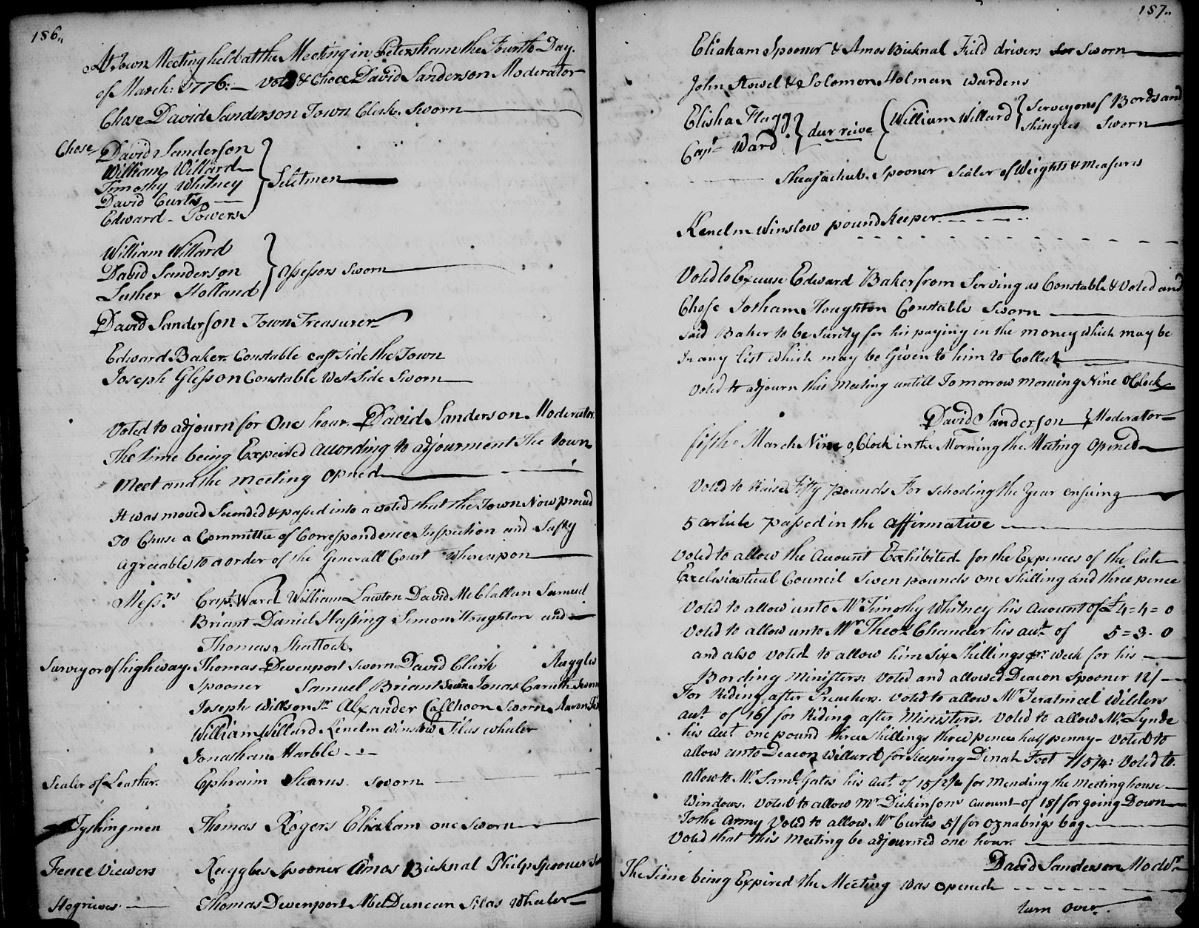 186,,
At Town Meeting held at the Meeting in Petersham the Fourth Day.
of March: 1776:— Voted & Choce David Sanderson Moderator
Chose David Sanderson Town Clerk. Sworn
Chose David Sanderson
William Willard
Timothy Whitney
David Curtis
Edward Powers
Selitmen
William Willard
David Sanderson
Luther Holland
Assessors Sworn
David Sanderson Town Treasurer
Edward Baker. Constable east Side the Town
Joseph Glesson Constable West Side Sworn
Voted to adjourn for One hour. David Sanderson Moderator
The time being Expeired according to adjourment the town
Meet and the meeting opned
It was moved Seconded & passed into a voted that the Town Now proced
To Chuse a Committe of Correspondence Inspection and Safty
Agreeable to a order of the Generall Court Whereupon
Mess:rs Capt. Ward William Lawton David McClallen Samuel
Briant Daniel Hasting Simon Houghton and
Thomas Shattock
Surveyor of highway. Thomas Devenport Sworn David Clark Ruggles
Spooner Samuel Briant Sworn Jonas Carruth Sworn
Joseph Willson Alexander Callhoon Sworn Aaron
William Willard Kenelm Winslow Silas Wheeler
Jonathan Marble
Sealer of Leather. Ephraim Stearns Sworn
Tythingmen Thomas Rogers Eliakam one Sworn
Fence Viewers Ruggles Spooner Amos Bicknal Philip Spooner
Hogrieves Thomas Devenport Abel Duncan Silas Wheeler
187,,
Eliakam Spooner & Amos Bicknal Fild drivers Sworn
John Stowel & Solomon Holman Wardens
Elisha Flagg
Capt Ward
dur reive
William Willard
Surveyors of Bords and
Shingles Sworn
Spooner Sealer of Weights & Measures
Kenelm Winslow pound keeper
Voted to Excuse Edward Baker from Serving as Constable & Voted and
Chose Jotham Houghton Constable Sworn
Said Baker to be Surity for his paying in the money which may be
In any list which may be Given to him to Collect
Voted to adjourn this Meeting untill Tomorrow morning Nine OClock
David Sanderson Moderator
fifthe March Nine oClock in the Morning the Meeting Opened
Voted to Raise Fifty pounds For Schooling the Year ensuing
5 article passed in the affirmative
Voted to allow the Account Exhibited for the Expences of the late
Ecclesiastical Council Seven pounds one Shilling and three pence
Voted to allow unto Mr Timothy Whitney his Account of £4=4=0
Voted to allow unto Mr Theor. Chandler his act. of 5=3-0
and also voted to allow him Six Shillings pr week for his
Bording Ministers. Voted and allowed Deacon Spooner 12/
For Riding after Preachers. Voted to allow Mr Jerahmeel Wilders
act. of 16/ for Riding after Ministers. Voted to allow Mr Lynde
his act one pound three shillings three pence half penny - Voted to
allow unto Deacon Willard for keeping Dinah Foot Voted to
allow to Mr Saml Gates his act of for Mending the Meeting house
Windows. Voted to allow Mr Dickinsons account of 18/ for going Down
To the Army Voted to allow Mr Curtis 5/ for Oznabrigs bag
Voted that this Meeting be adjourned one hour.
David Sanderson Modr
The Time being Expired the Meeting was opened
turn over